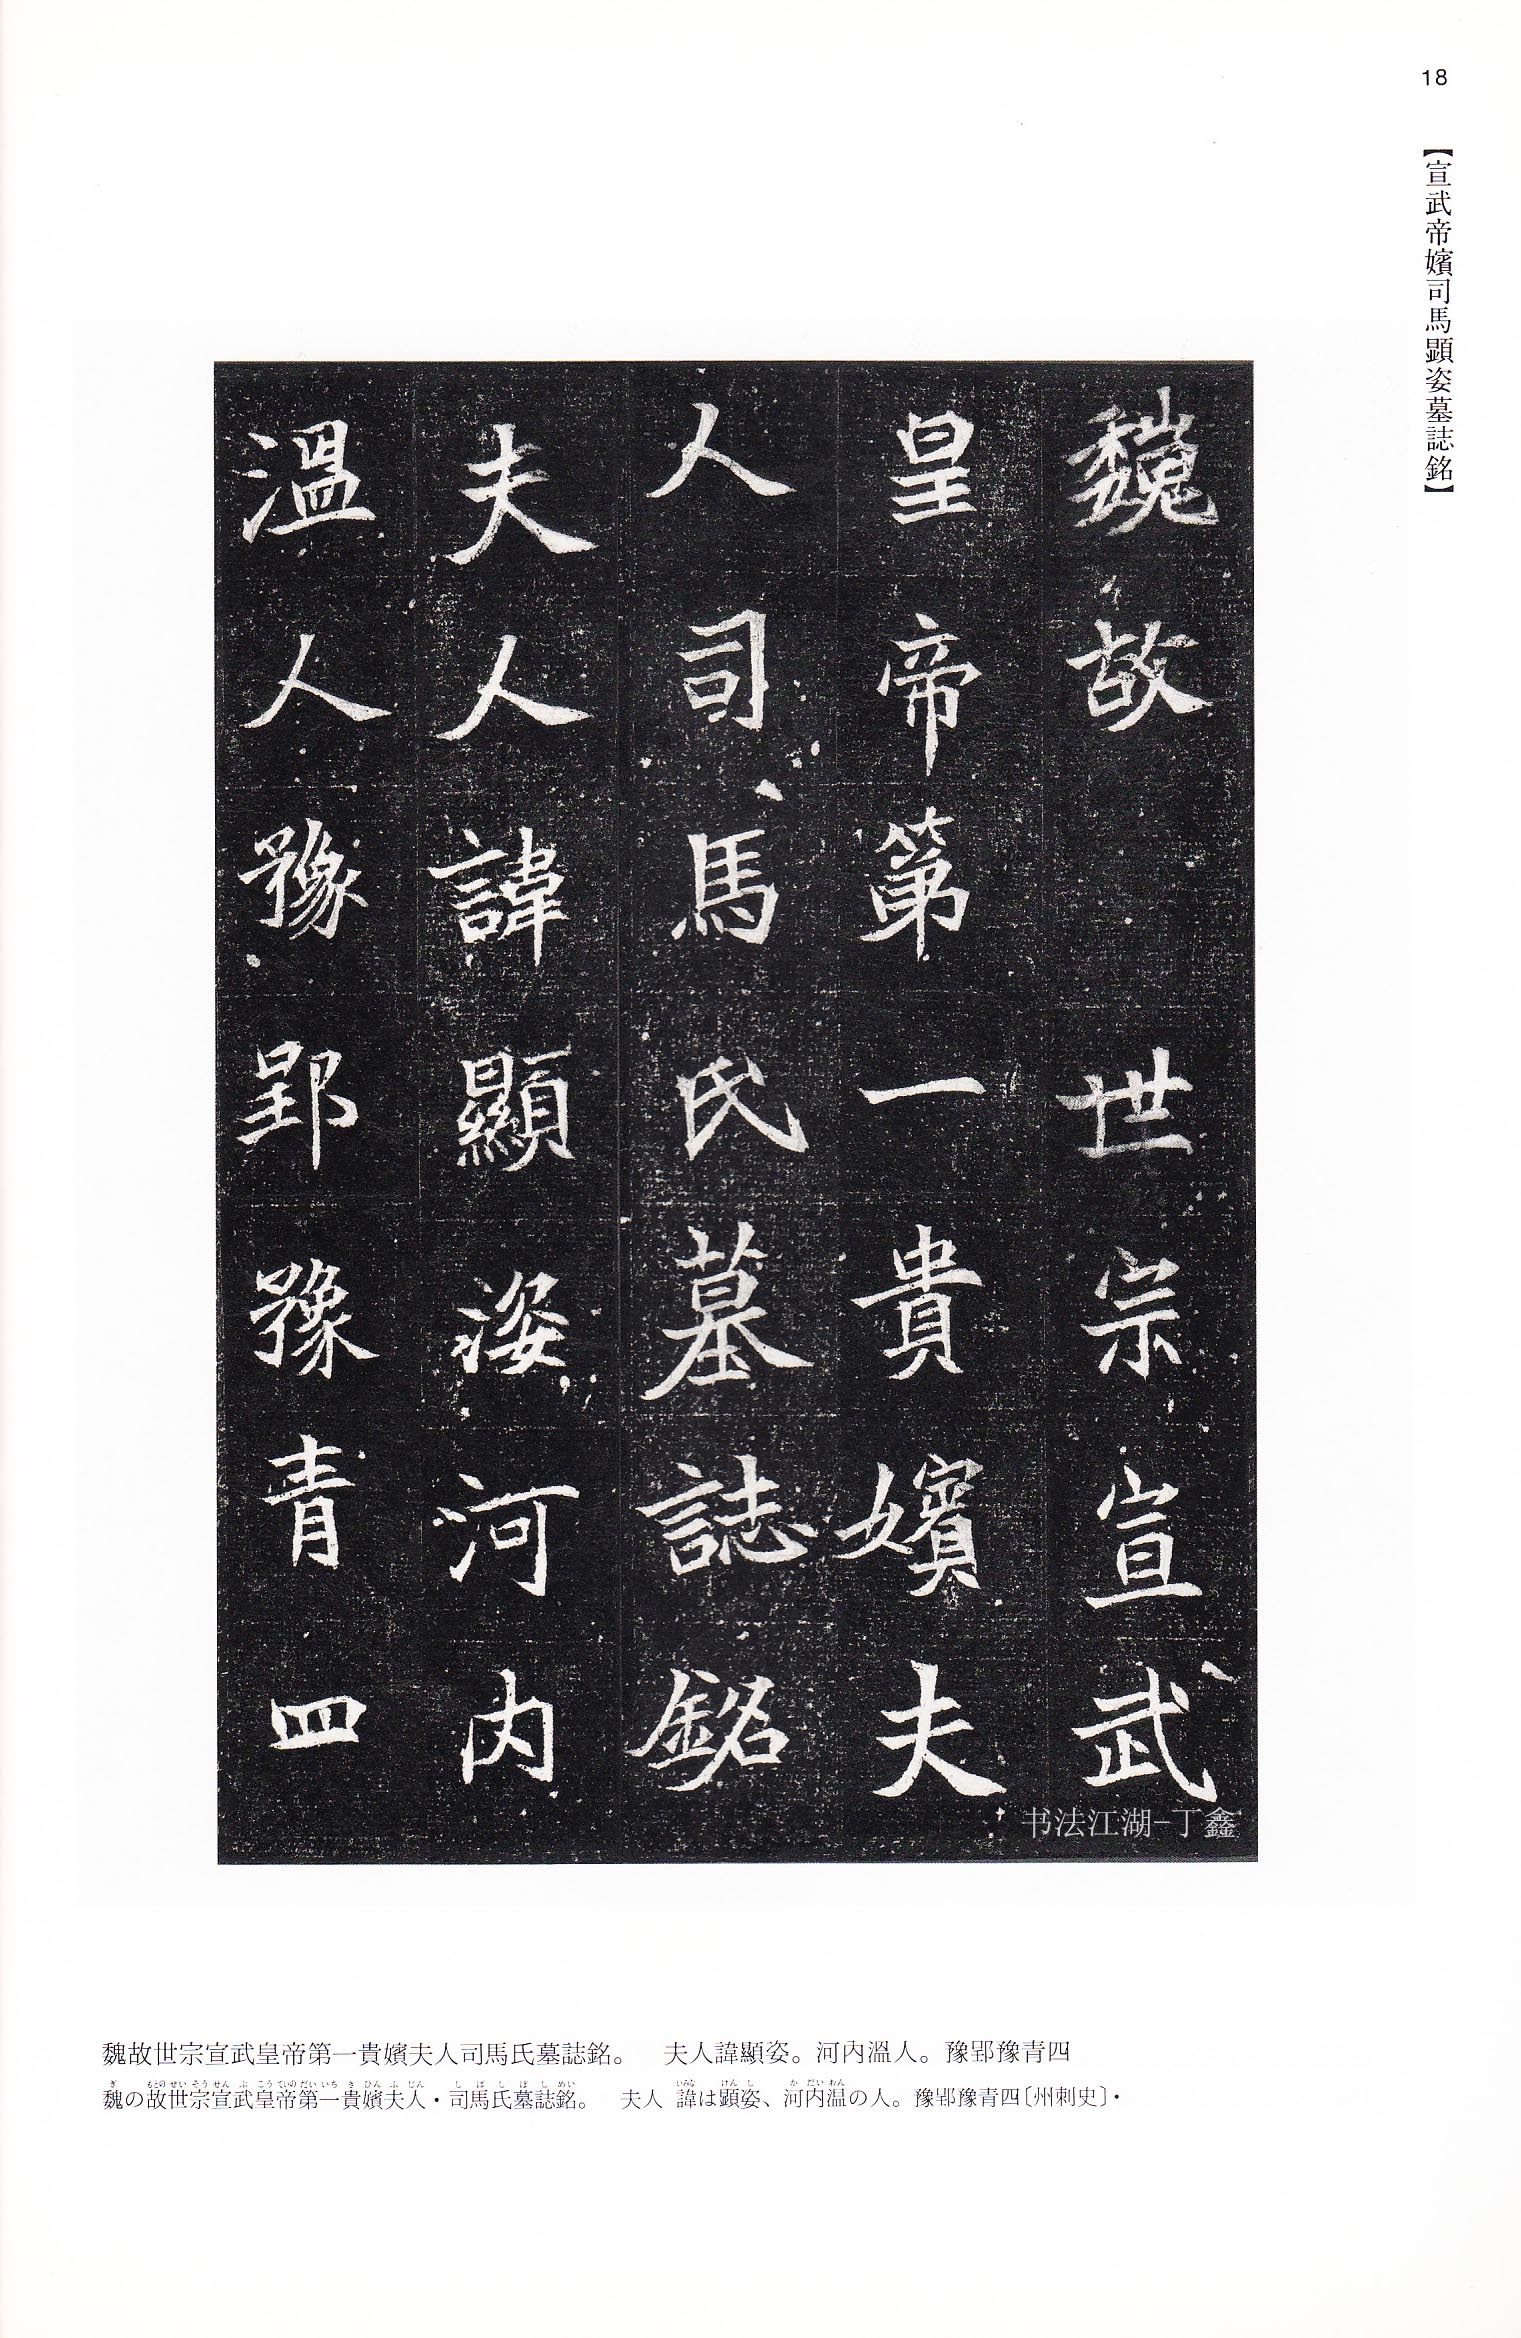 18
【宣武帝嬪司馬顕姿墓誌銘】
魏故　世宗宣武
皇帝第一貴嬪夫
人司馬氏墓誌銘
夫人諱顯姿河內
溫人豫郢豫青四
书法江湖-丁鑫
魏故世宗宣武皇帝第一貴嬪夫人司馬氏墓誌銘。　夫人諱顯姿。河內溫人。豫郢豫青四
魏の故世宗宣武皇帝第一貴嬪夫人・司馬氏墓誌銘。　夫人 諱は顕姿、河内温の人。豫郢豫青四〔州刺史〕・